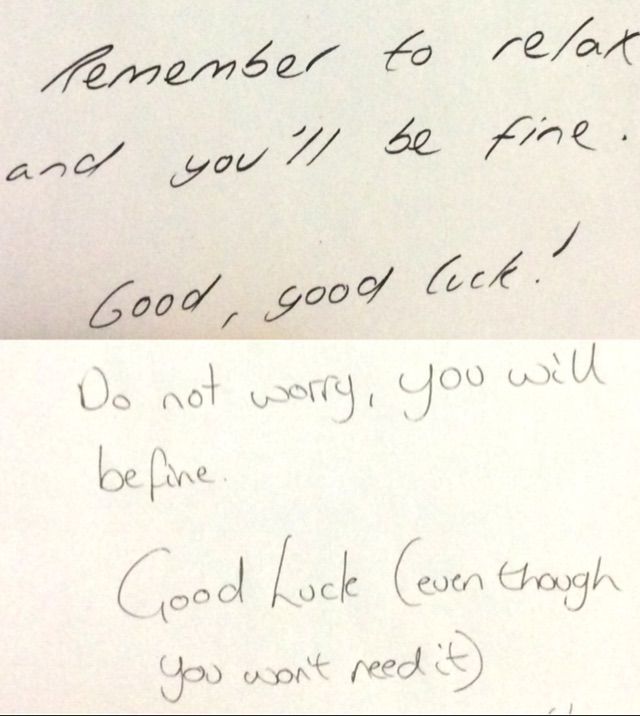 Remember to relax
and you'll be fine.
Good, good luck!
Do not worry, you will
be fine.
Good Luck (even though
you won't need it)